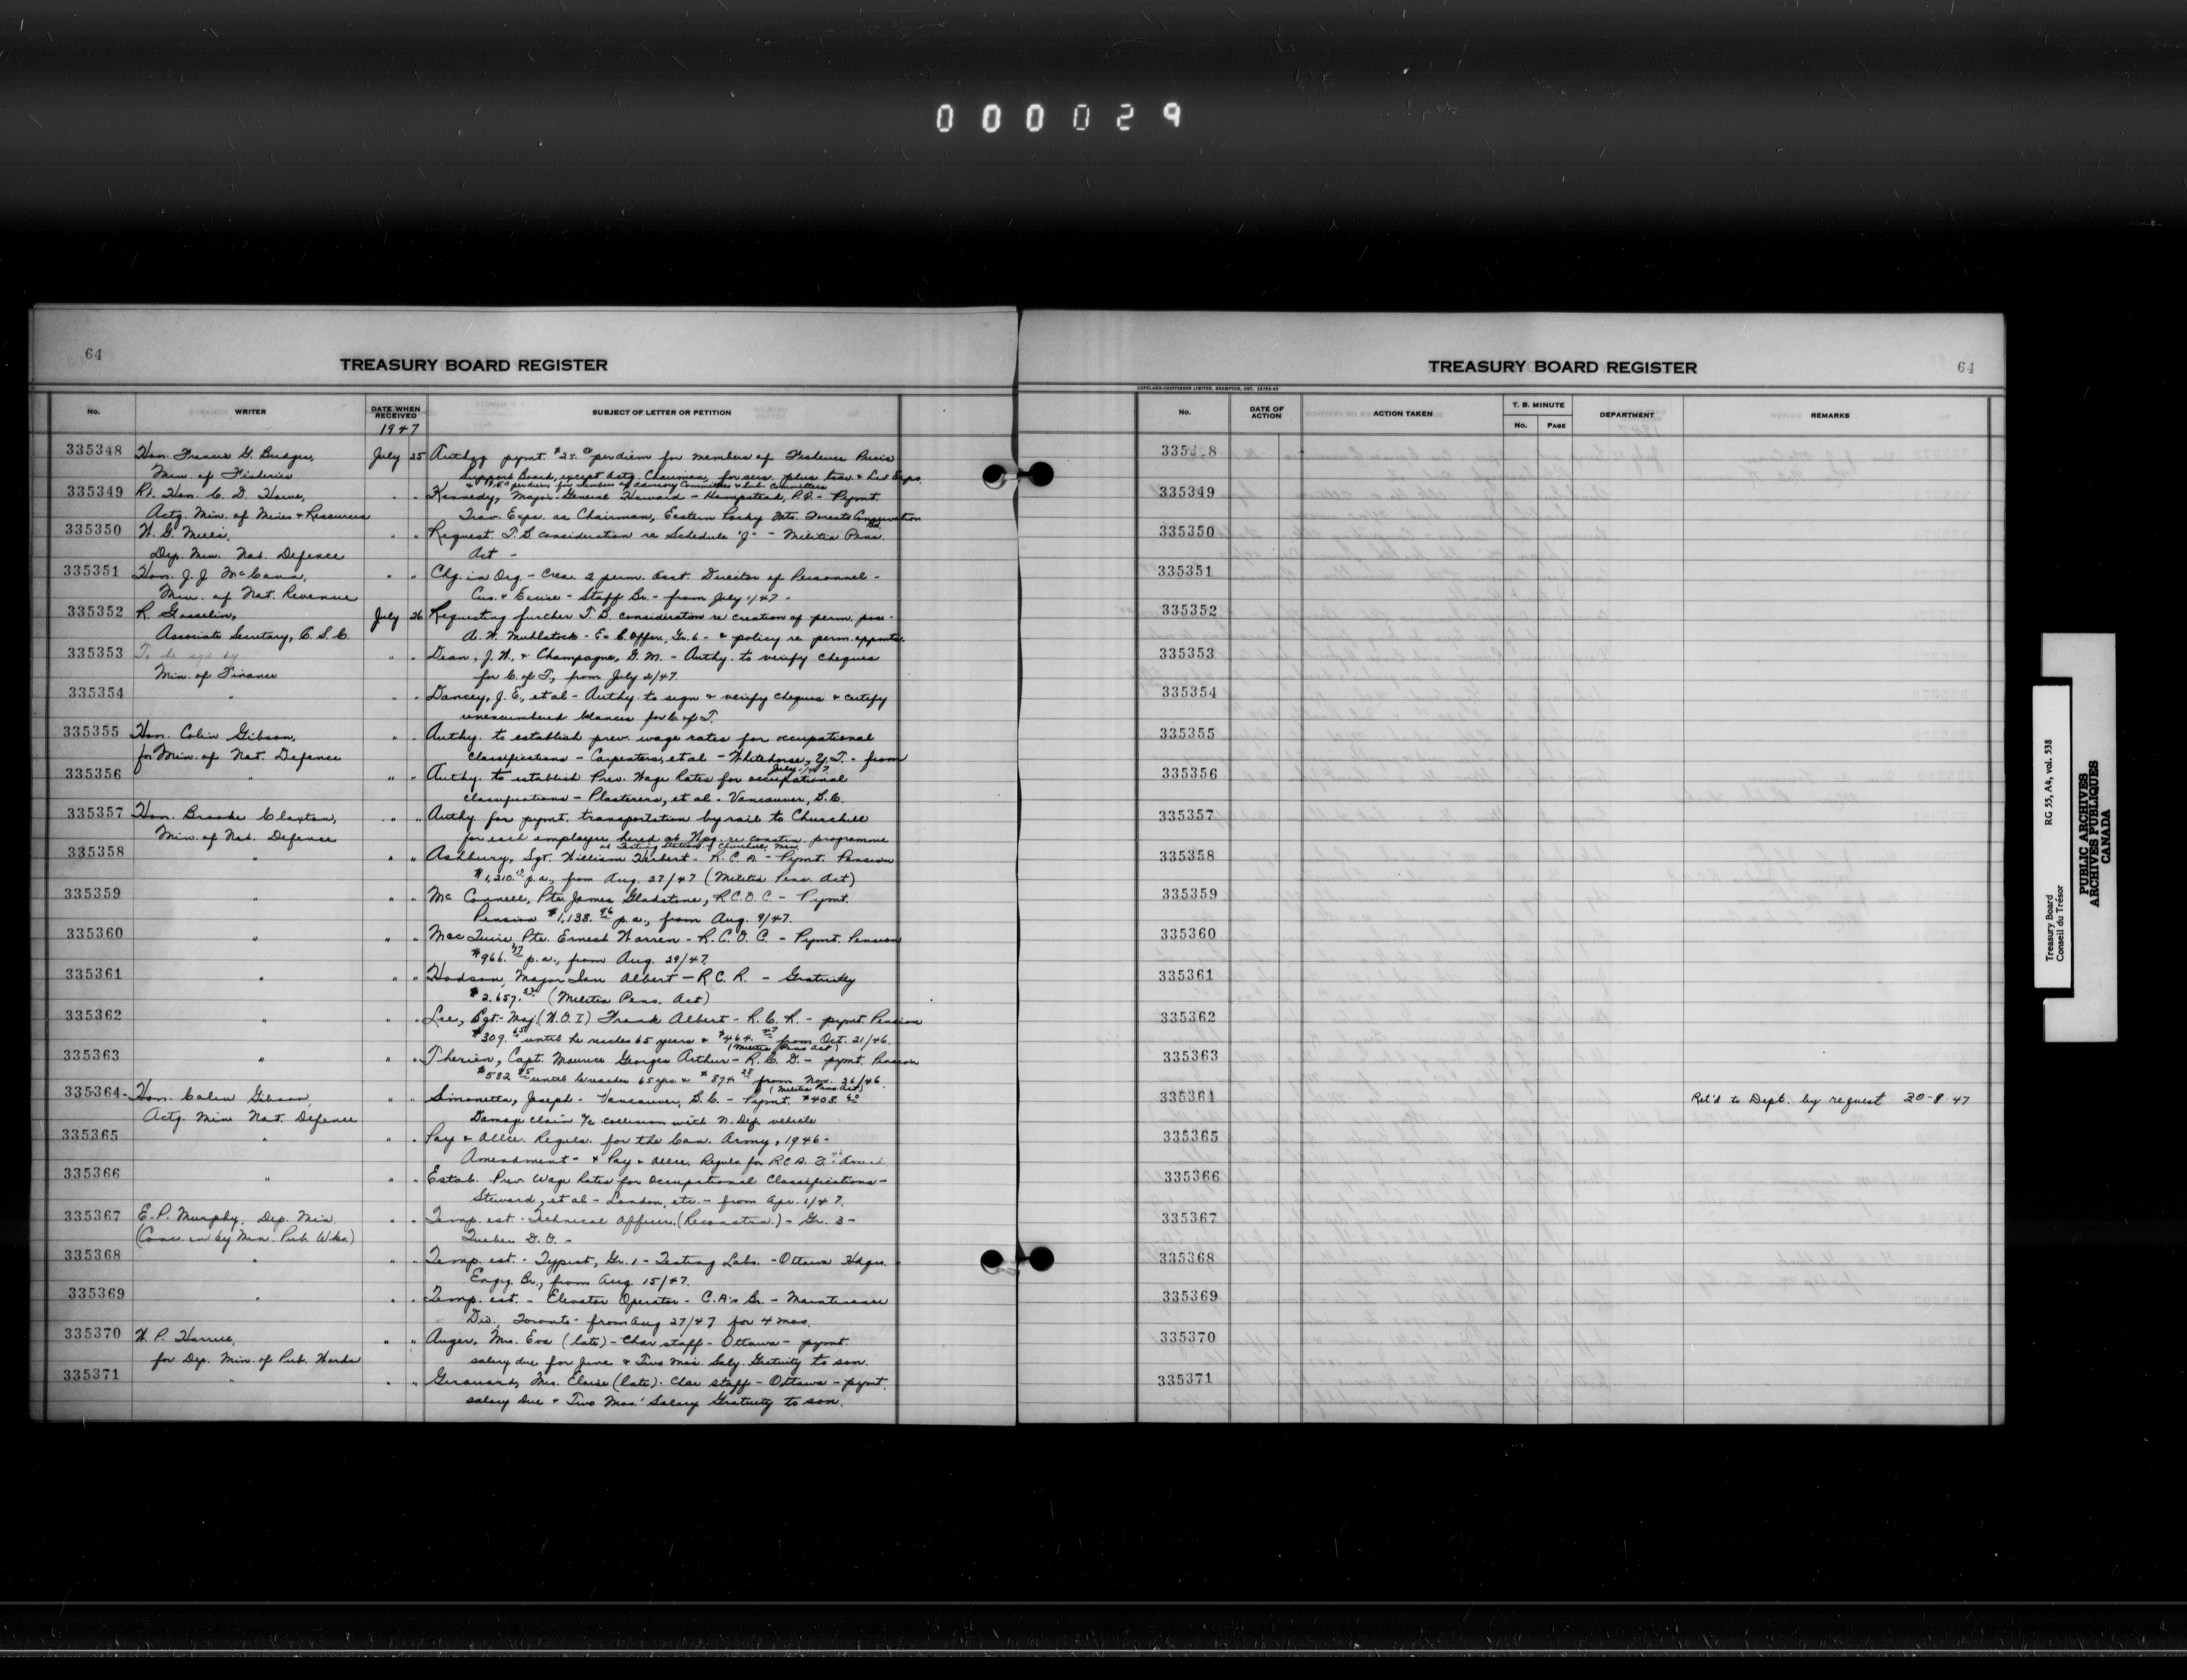 000029
64
TREASURY BOARD REGISTER
No.
WRITER
DATE WHEN RECEIVED
SUBJECT OF LETTER OR PETITION
1947
335348 Hon. Francis G. Bridges, July 25 Authzg pymt. $25.00 per diem for members of Fisheries Price
Min. of Fisheries Support Board, except Actg. Chairman, for serv. plus trav. & Liv Exps.
per diem for members of Advisory Committee & Sub. Committees
335349 Rt. Hon. C. D. Howe, " " Kennedy, Major-General Howard - Hampstead, P.Q. - Pymt.
Actg. Min. of Mines & Resources Trav. Exps. as Chairman, Eastern Rocky Mts. Forests Conservation Bd.
335350 W. G. Mills, " " Request T.B consideration re Schedule "J" - Militia Pens.
Dep. Min. Nat. Defence Act -
335351 Hon. J. J McCann, " " Chg. in Org - Crea. 2 perm. Asst. Director of Personnel -
Min. of Nat. Revenue Cus. & Excise - Staff Br. - from July 1/47 -
335352 R. Gosselin, July 26 Requesting further T.B. consideration re creation of perm. pos. -
Associate Secretary, C.S.C. A. W. Muhlstock - Ex C. Offcr, Gr. 6 - & policy re perm. appmts.
335353 To be sgd by " " Dean, J. W., & Champagne, G. M. - Authy. to verify cheques
Min. of Finance for C. of T., from July 2/47.
335354 " " " Dancey, J. E., et al - Authy. to sign & verify cheques & certify
unencumbered balances for C. of T.
335355 Hon. Colin Gibson, " " Authy. to establish prev. wage rates for occupational
for Min. of Nat. Defence classifications - Carpenters, et al - Whitehorse, Y.T. - from
July 1/47.
335356 " " " Authy. to establish Prev. Wage Rates for occupational
classifications - Plasterers, et al - Vancouver, B.C.
335357 Hon. Brooke Claxton, " " Authy for pymt. transportation by rail to Churchill
Min. of Nat. Defence for each employee hired at Wpg. re constrn. programme
at Testing Station of Churchill, Man.
335358 " " " Ashbury, Sgt. William Herbert - R.C.A - Pymt. Pension
$1,210. p.a., from Aug. 27/47 (Militia Pens. Act)
335359 " " " McConnell, Pte. James Gladstone, R.C.O.C - Pymt.
Pension $1,138.96 p.a., from Aug. 9/47.
335360 " " " Mac , Pte. Ernest Warren - R.C.O.C. - Pymt. Pension
$966. p.a., from Aug. 29/47.
335361 " " " Hodson, Major Ian Albert - R.C.R. - Gratuity
$2,657. (Militia Pens. Act)
335362 " " " Lee, Sgt.-Maj. (W.O.I) Frank Albert - R.C.R. - pymt. Pension
$309. until he reaches 65 years & $464. from Oct. 21/46.
(Militia Pens Act)
335363 " " " Therien, Capt. Maurice Georges Arthur - R.C.D. - pymt. Pension
$582.85 until he reaches 65 yrs. & $874.28 from Nov. 26/46.
(Militia Pens. Act)
335364 - Hon. Colin Gibson, " " Simonetta, Joseph - Vancouver, B.C. - Pymt. $408.60
Actg. Min Nat. Defence Damage claim a/c collision with N. Def. vehicle
335365 " " " Pay & Allce. Regulns. for the Can. Army, 1946 -
Amendment - & Pay & Allce. Regulns for RCA.
335366 " " " Estab. Prev. Wage Rates for Occupational Classifications -
Steward, et al - London, etc. - from Apr. 1/47.
335367 E. P. Murphy, Dep. Min. " " Temp. est. - Technical Officer (Reconstrn.) - Gr. 3 -
(Conc. in by Min. Pub. Wks.) Quebec D.O. -
335368 " " " Temp. est. - Typist, Gr. 1 - Testing Labs. - Ottawa Hdqrs.
Engrg. Br., from Aug. 15/47.
335369 " " " Temp. est. - Elevator Operator - C.A's Br. - Maintenance
Div., Toronto - from Aug 27/47 for 4 mos.
335370 W. P. Harrell, " " Auger, Mrs. Eva (late) - Char staff - Ottawa - pymt.
for Dep. Min. of Pub. Works salary due for June & Two Mos. Saly. Gratuity to son.
335371 " " " Girouard, Mrs. Eloise (late). Char staff - Ottawa - pymt.
salary due & Two Mos.' Salary Gratuity to son.
TREASURY BOARD REGISTER
64
COPELAND-CHATTERSON LIMITED, BRAMPTON, ONT.
No.
DATE OF ACTION
ACTION TAKEN
T. B. MINUTE
No.
PAGE
DEPARTMENT
REMARKS
335348
335349
335350
335351
335352
335353
335354
335355
335356
335357
335358
335359
335360
335361
335362
335363
335364 Ret'd to Dept. by request 20-8-47
335365
335366
335367
335368
335369
335370
335371
Treasury Board
Conseil du Trésor
RG 55, A4, vol. 538
PUBLIC ARCHIVES
ARCHIVES PUBLIQUES
CANADA